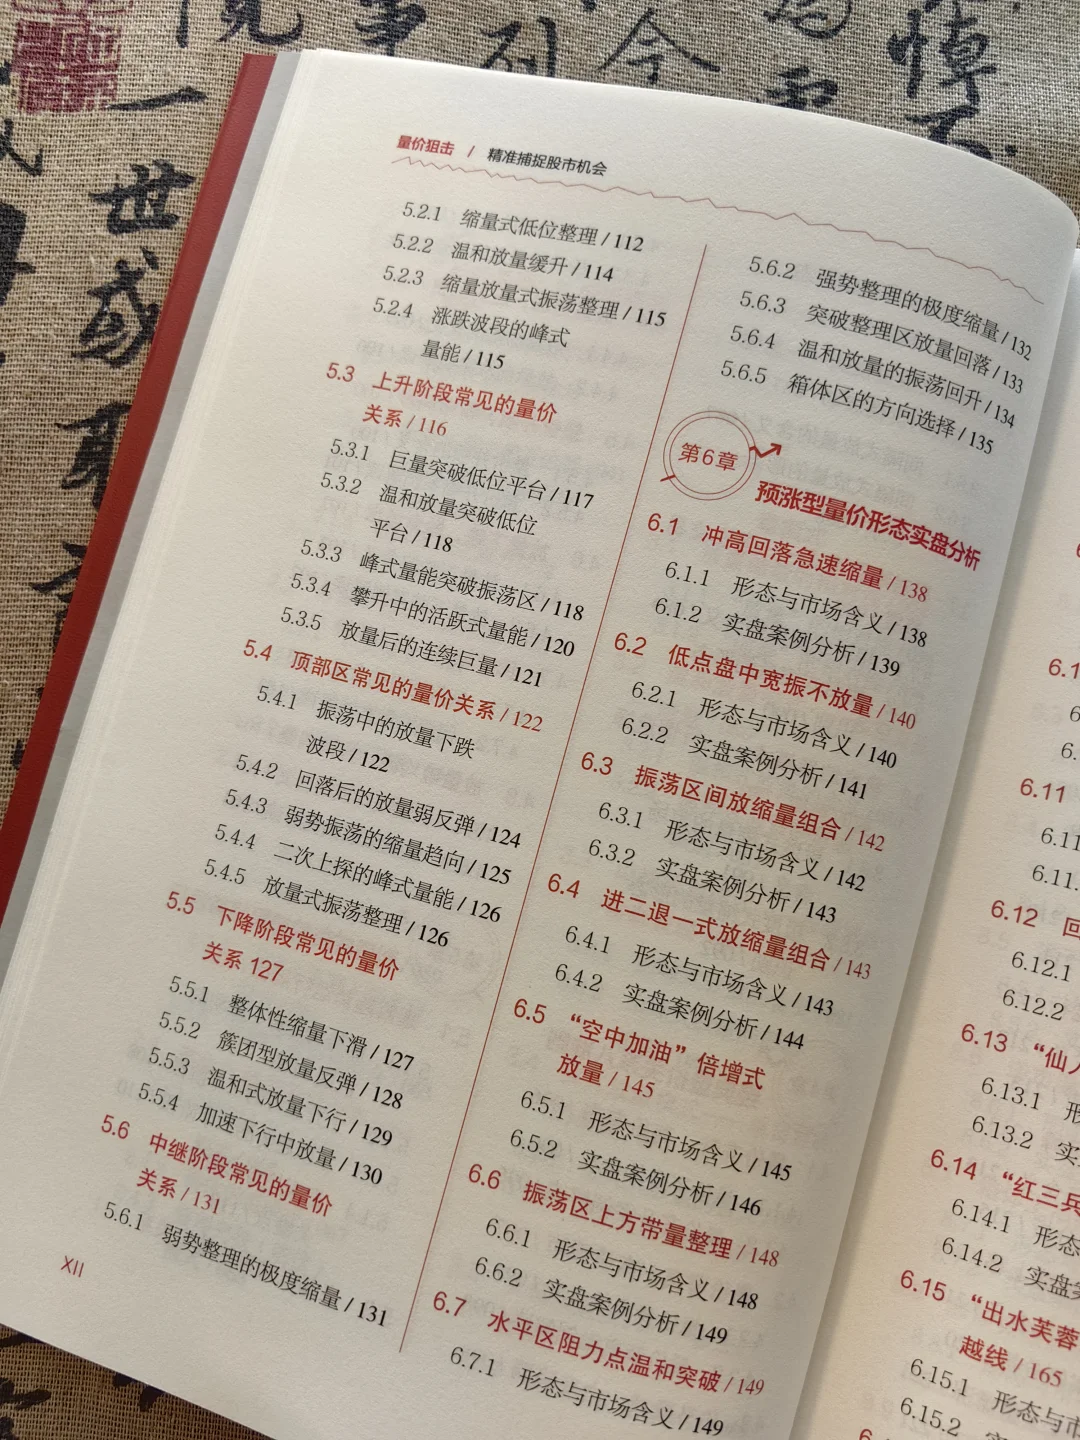 量价狙击 / 精准捕捉股市机会
5.2.1 缩量式低位整理 / 112
5.2.2 温和放量缓升 / 114
5.2.3 缩量放量式振荡整理 / 115
5.2.4 涨跌波段的峰式
量能 / 115
5.3 上升阶段常见的量价
关系 / 116
5.3.1 巨量突破低位平台 / 117
5.3.2 温和放量突破低位
平台 / 118
5.3.3 峰式量能突破振荡区 / 118
5.3.4 攀升中的活跃式量能 / 120
5.3.5 放量后的连续巨量 / 121
5.4 顶部区常见的量价关系 / 122
5.4.1 振荡中的放量下跌
波段 / 122
5.4.2 回落后的放量弱反弹 / 124
5.4.3 弱势振荡的缩量趋向 / 125
5.4.4 二次上探的峰式量能 / 126
5.4.5 放量式振荡整理 / 126
5.5 下降阶段常见的量价
关系 127
5.5.1 整体性缩量下滑 / 127
5.5.2 簇团型放量反弹 / 128
5.5.3 温和式放量下行 / 129
5.5.4 加速下行中放量 / 130
5.6 中继阶段常见的量价
关系 / 131
5.6.1 弱势整理的极度缩量 / 131
XII
5.6.2 强势整理的极度缩量 / 132
5.6.3 突破整理区放量回落 / 133
5.6.4 温和放量的振荡回升 / 134
5.6.5 箱体区的方向选择 / 135
第6章
预涨型量价形态实盘分析
6.1 冲高回落急速缩量 / 138
6.1.1 形态与市场含义 / 138
6.1.2 实盘案例分析 / 139
6.2 低点盘中宽振不放量 / 140
6.2.1 形态与市场含义 / 140
6.2.2 实盘案例分析 / 141
6.3 振荡区间放缩量组合 / 142
6.3.1 形态与市场含义 / 142
6.3.2 实盘案例分析 / 143
6.4 进二退一式放缩量组合 / 143
6.4.1 形态与市场含义 / 143
6.4.2 实盘案例分析 / 144
6.5 “空中加油”倍增式
放量 / 145
6.5.1 形态与市场含义 / 145
6.5.2 实盘案例分析 / 146
6.6 振荡区上方带量整理 / 148
6.6.1 形态与市场含义 / 148
6.6.2 实盘案例分析 / 149
6.7 水平区阻力点温和突破 / 149
6.7.1 形态与市场含义 / 149
6.11
6.12 回
6.12.1
6.12.2
6.13 “仙人
6.13.1 形
6.13.2 实
6.14 “红三兵
6.14.1 形态
6.14.2 实盘
6.15 “出水芙蓉
越线 / 165
6.15.1 形态与
6.15.2 实
一世
今